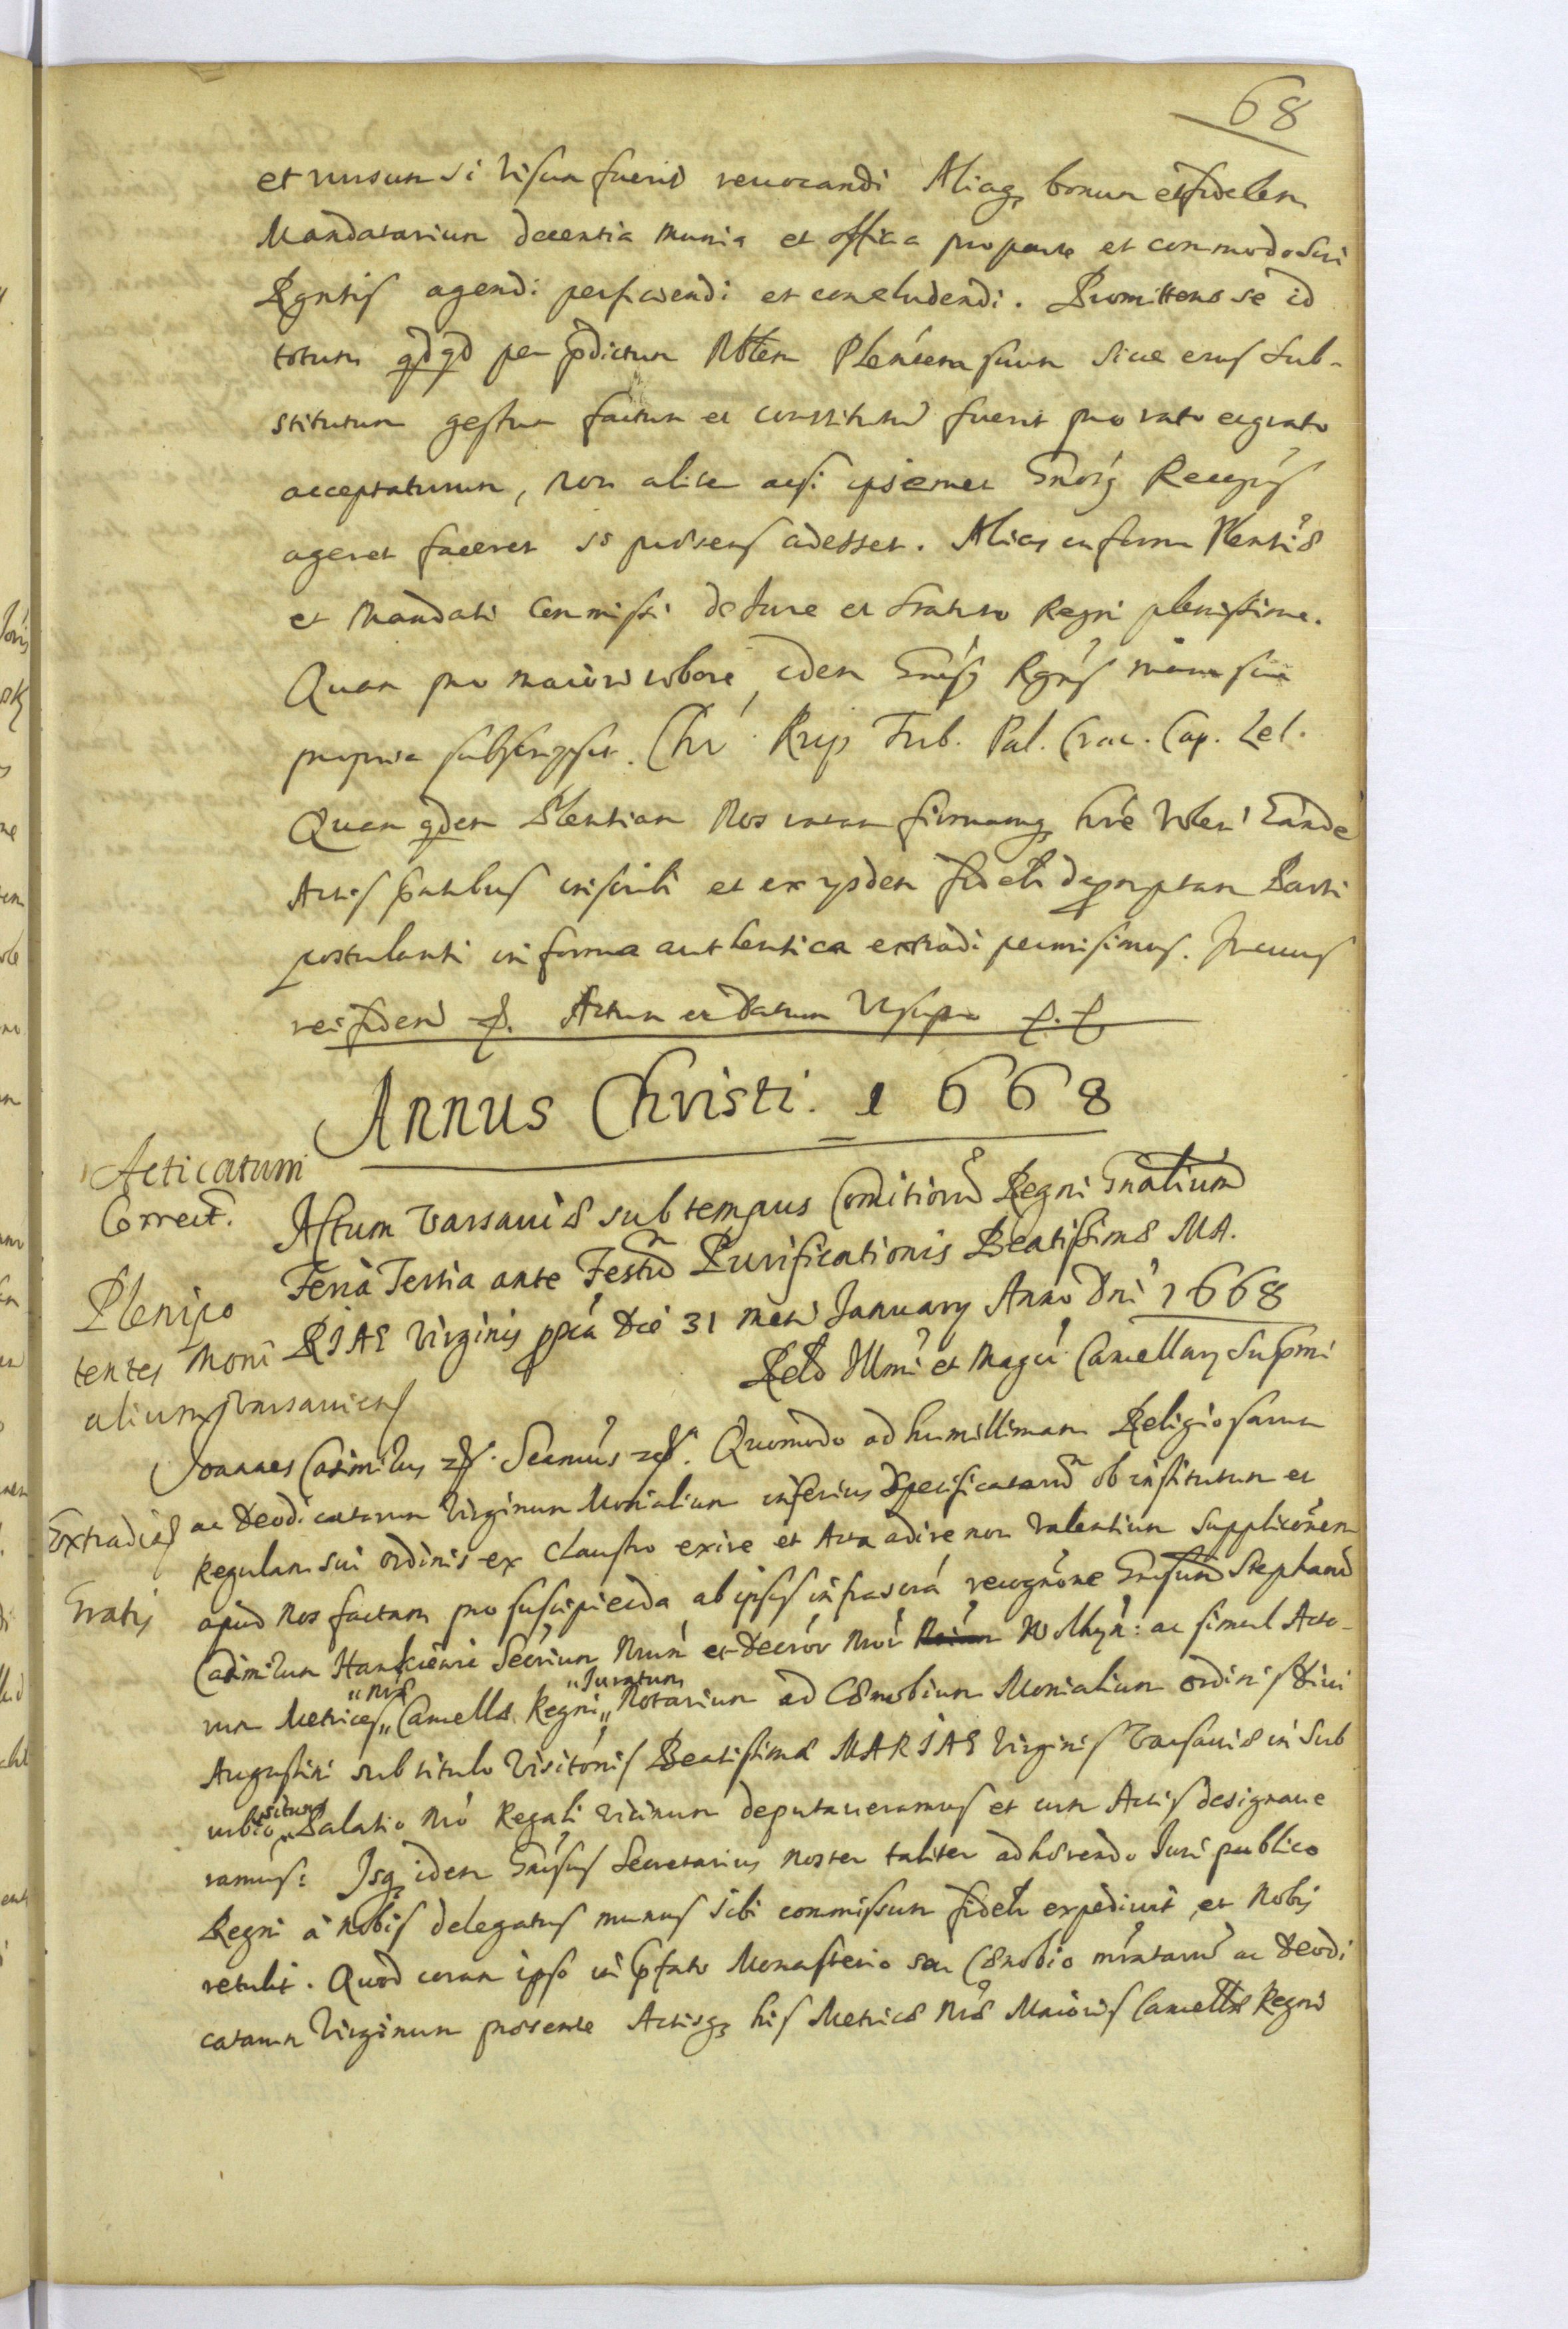 68
et rursum si visum fuerit reuocandi Aliaq, bonum et fidelem
Mandatarium decentia munia et officia pro parte et commodo sui
Rgntis agendi perficiendi et concludendi. Promittens se id
totum qdqd per pdictum Nblem Plentem suum siue eius sub-
stitutum gestum factum et constitutu fuerit pro rato et grato
acceptaturum, non aliter acsi ipsemet Gnosq Recogns
ageret faceret si praesens adesset. Alias in forma Plentis
et Mandati Commissi de Iure et Statuto Regni plenissime.
Quam pro maiori robore idem Gnsq Rgns manu sua
propria subscripsit. Chr. Rup Trib. Pal. Crac. Cap. Lel.
Quam qdem Plentiam Nos ratam firmamq hre volen' Eande
Actis pntibus inscribi et ex ysdem fideli depromptam Parti
postulanti in forma authentica extradi permisimus. In cuius
rei fidem Actum et Datum Vtsupra
Annus Christi. 1668
Acticatum
Correct.
Actum Varsauiae sub tempus Comitioru Regni Gnalium
Feria Tertia ante Festu Purificationis Beatissimae MA.
RIAE Virginis ppria Die 31 mens January Anno Dni 1668
Plenipo
tentes Moni
alium Varsauien
Relo Illmi et Magci Cancellary Supmi
Joannes Casimirus Quomodo ad humillimam Religiosarum
ac Deodicatarum Virginum Monialium inferius specificataru ob institutum et
Extradies
Regulam sui ordinis ex claustro exire et Acta adire non valentium supplicõnem
Gratis
apud Nos factam pro suscipienda ab ipsis infrascra recognõne Gnsum Stephanu
Casimirum Hankiewic Secrium Nrum et Decror Nror Wolhyn: ac simul Acto-
rum Metrices „nrae Cancellae Regni „Juratum Notarium ad Caenobium Monialium ordinis Diui
Augustini sub titulo Visitõnis Beatissimae MARIAE Virginis Varsauiae in sub
urbio „situm Palatio Nro Regali vicinum deputaueramus et cum Actis designaue
ramus: Isq idem Gnsus Secretarius noster taliter adhaerendo Iuri publico
Regni à Nobis delegatus munus sibi commissum fideli expediuit et Nobis
retulit. Quod coram ipso in pfato Monasterio seu Caenobio mratarum ac Deodi
catarum Virginum praesente Actisq his Metricae Nrae Maioris Cancellae Regni